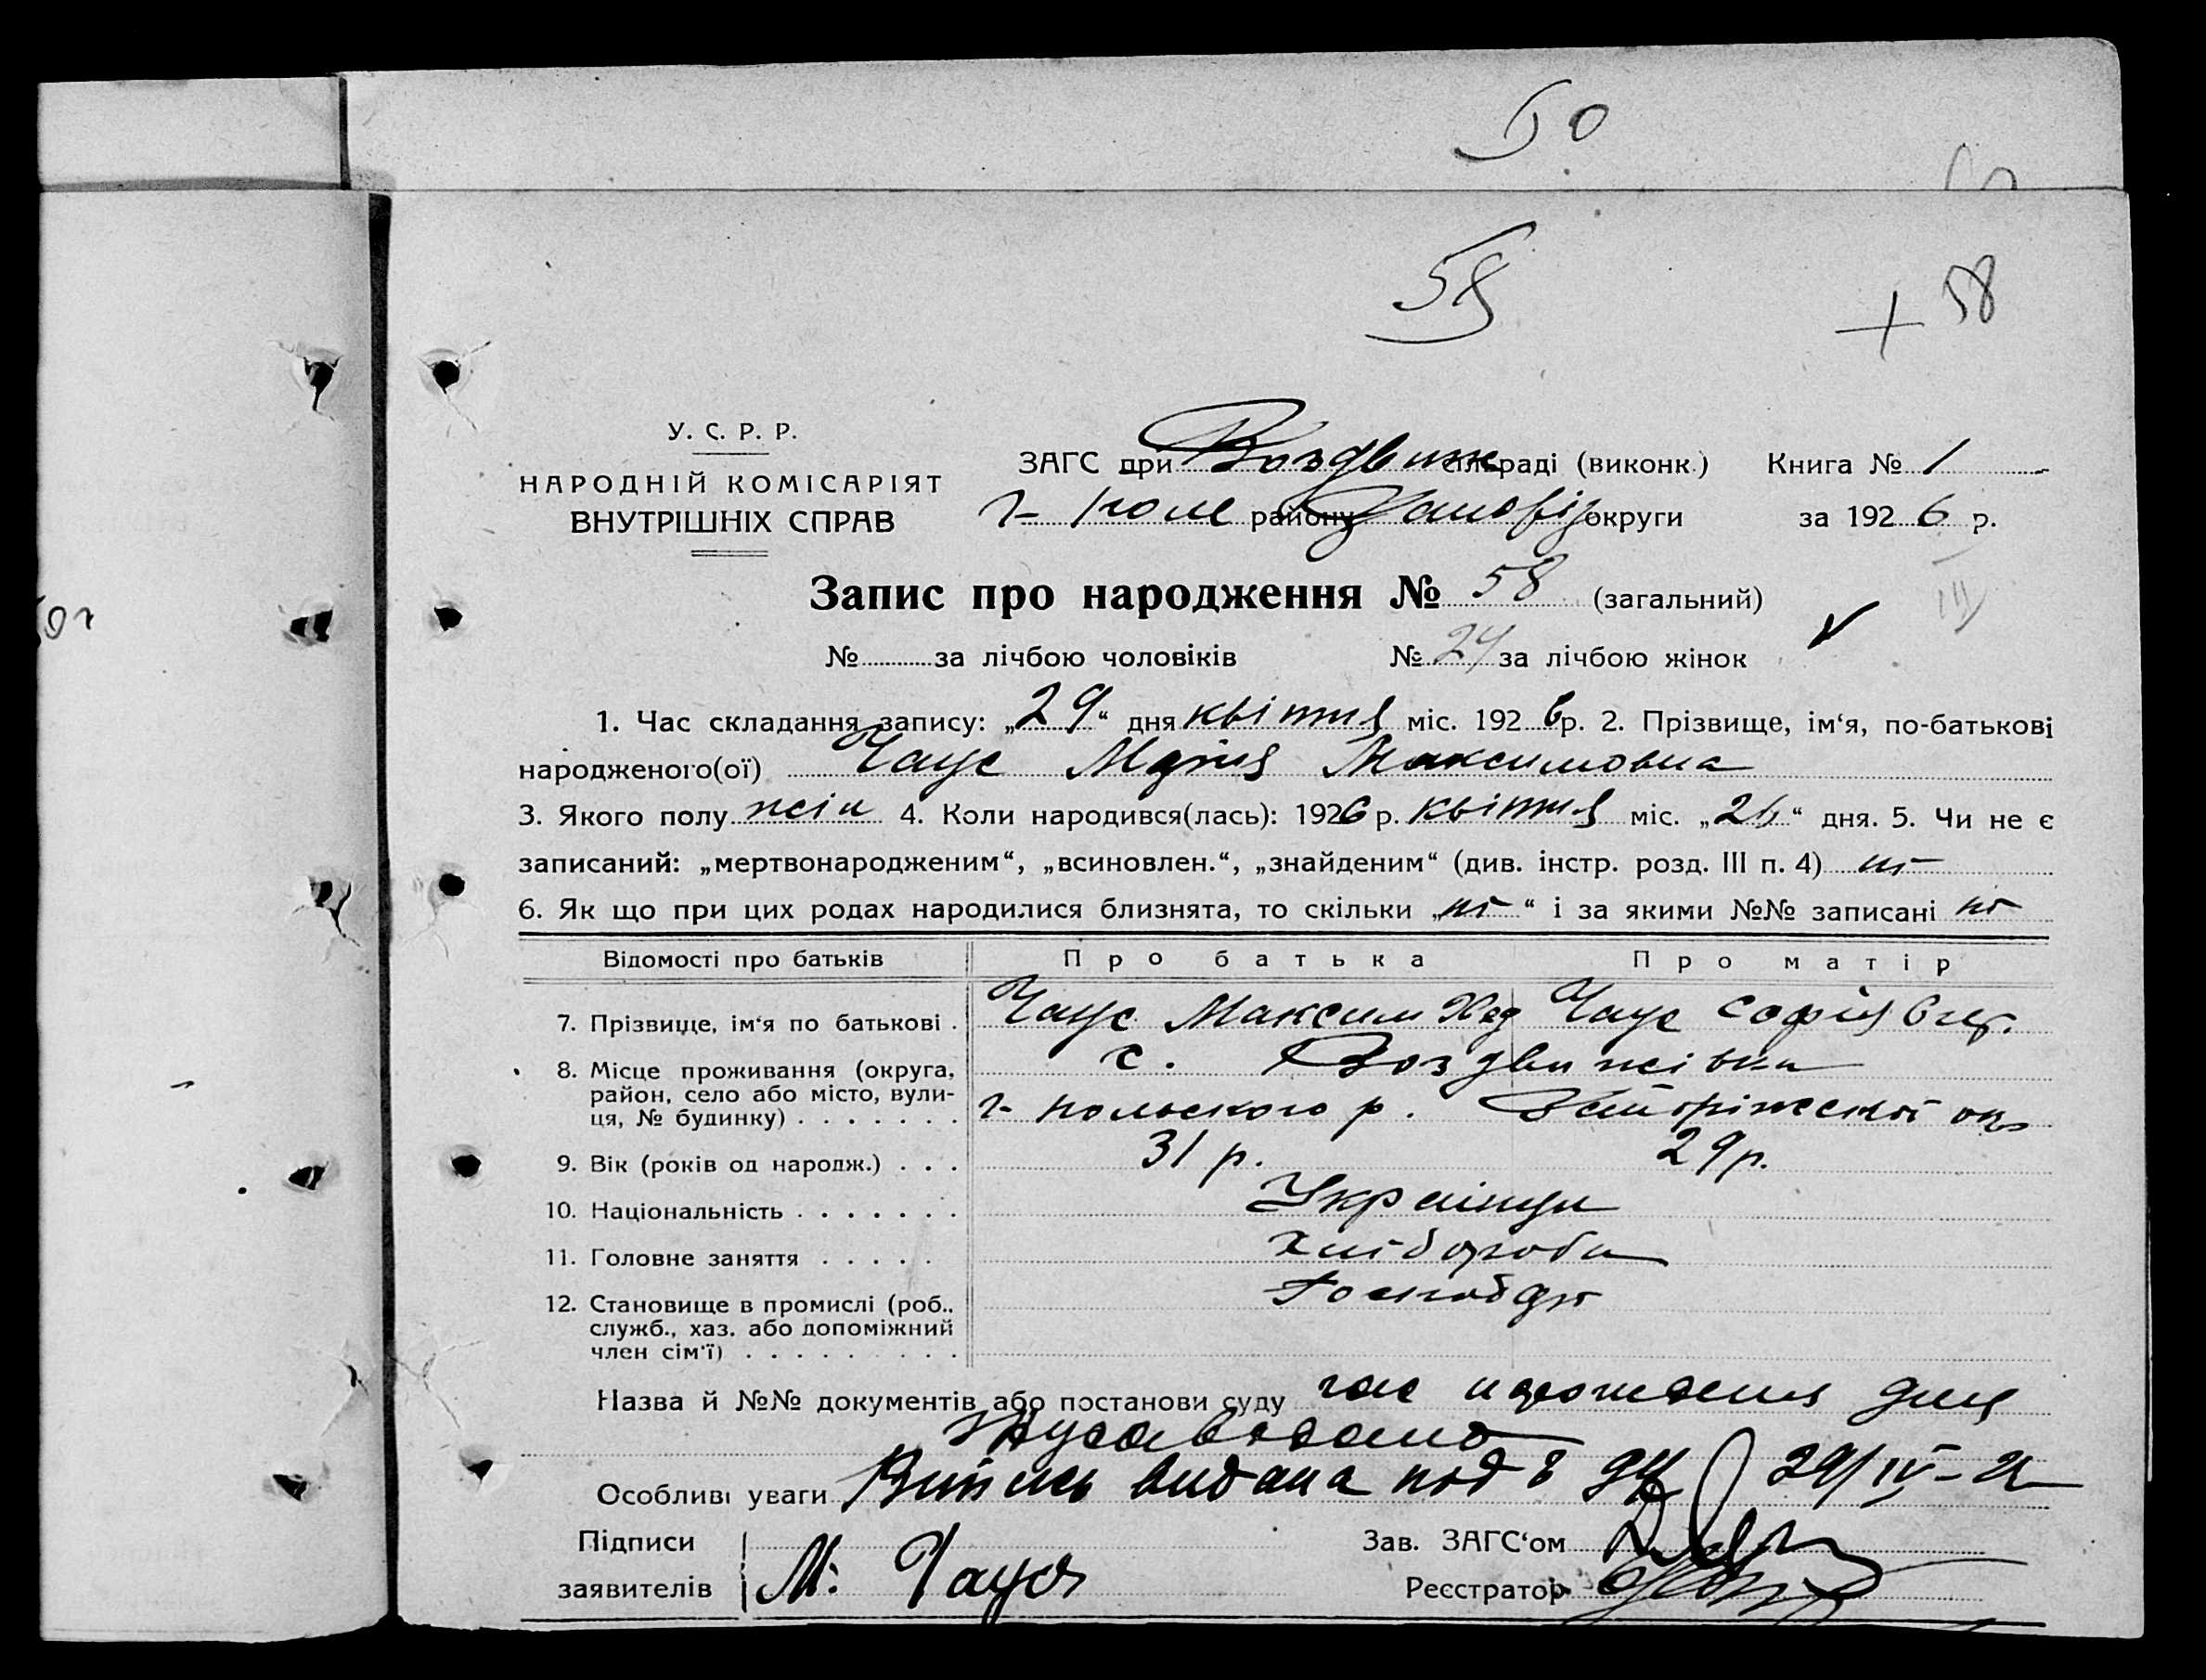 50
58
+ 58
У. С. Р. Р.
НАРОДНІЙ КОМІСАРІЯТ
ВНУТРІШНІХ СПРАВ
ЗАГС при Воздвиж сільраді (виконк.) Книга № 1
Г-Поле району округи за 1926 р.
III
Запис про народження № 58 (загальний)
№ за лічбою чоловіків № 24 за лічбою жінок
1. Час складання запису: „29“ дня квітня міс. 1926 р. 2. Прізвище, ім‘я, по-батькові
народженого(ої) Чаус Марія Максимовна
3. Якого полу жін 4. Коли народився(лась): 1926 р. квітня міс. „26“ дня. 5. Чи не є
записаний: „мертвонародженим“, „всиновлен.“, „знайденим“ (див. інстр. розд. III п. 4) ні
6. Як що при цих родах народилися близнята, то скільки „ні“ і за якими №№ записані ні
Відомості про батьків Про батька Про матір
7. Прізвище, ім‘я по батькові . Чаус Максим Чаус Софія
8. Місце проживання (округа, с. Воздвижівка
район, село або місто, вули- г-польского р. Запоріжської ок
ця, № будинку) . . . . . . .
9. Вік (років од народж.) . . . 31 р. 29 р.
10. Національність . . . . . . . Українци
11. Головне заняття . . . . . Хлібороби
12. Становище в промислі (роб.,
служб., хаз. або допоміжний
член сім‘ї) . . . . . . . . .
Назва й №№ документів або постанови суду
Особливі уваги Випись видана под 29/IV-26
Підписи Зав. ЗАГС‘ом
заявителів М. Чаус Реєстратор